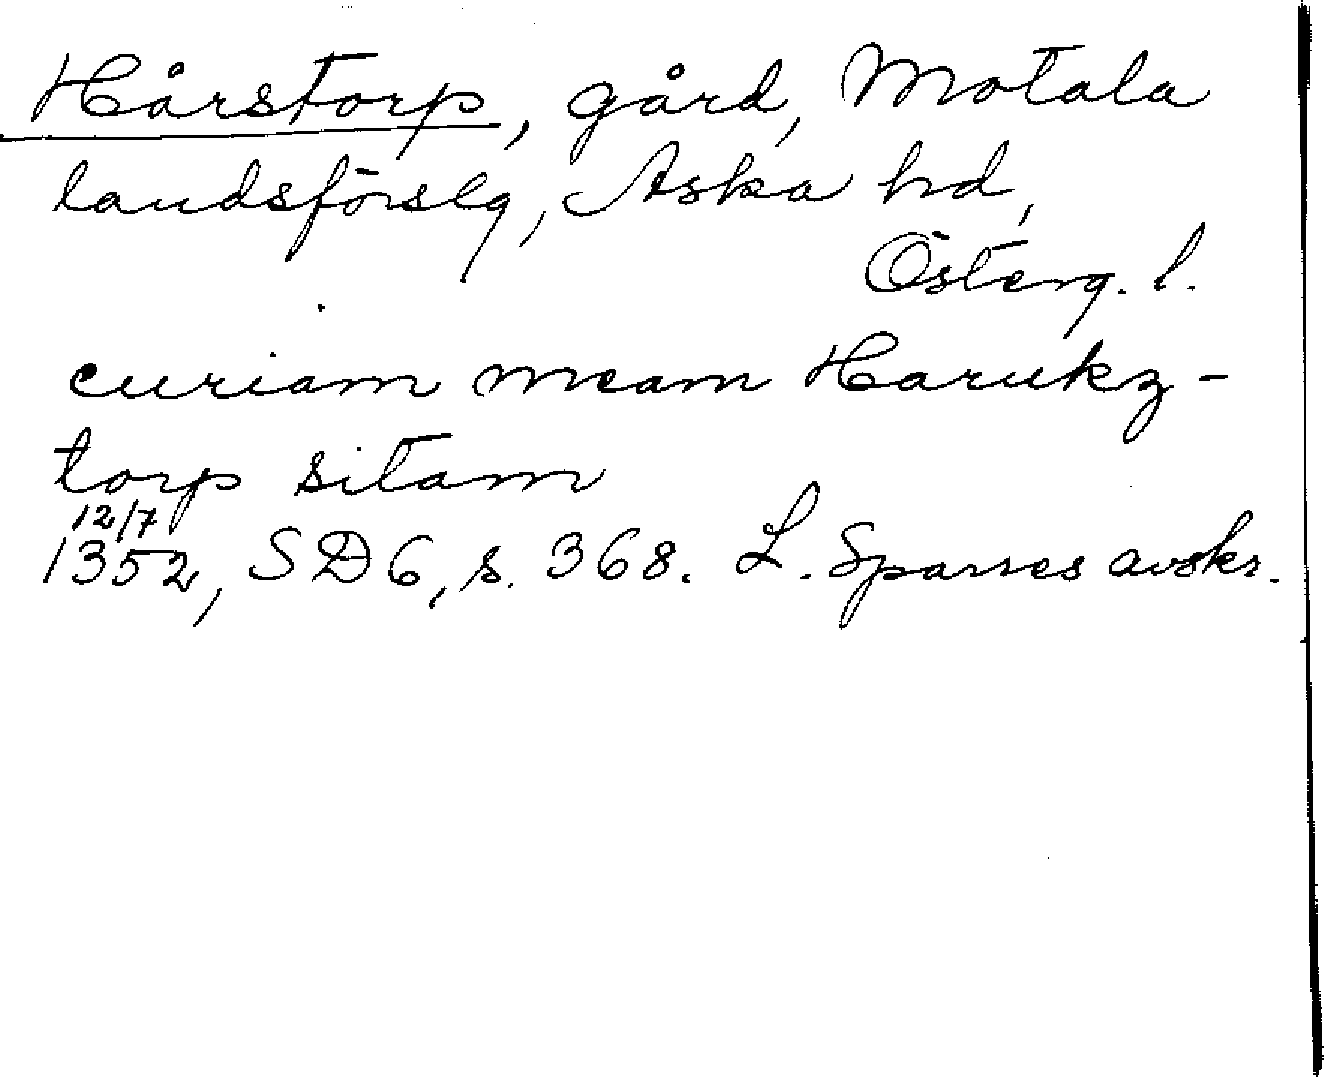 Hårstorp, gård, Motala
landsförslg, Aska hd,
Österg. l.
curiam meam Harukz-
torp sitam
12/7
1352, SD6, s. 368. L. Sparres avskr.